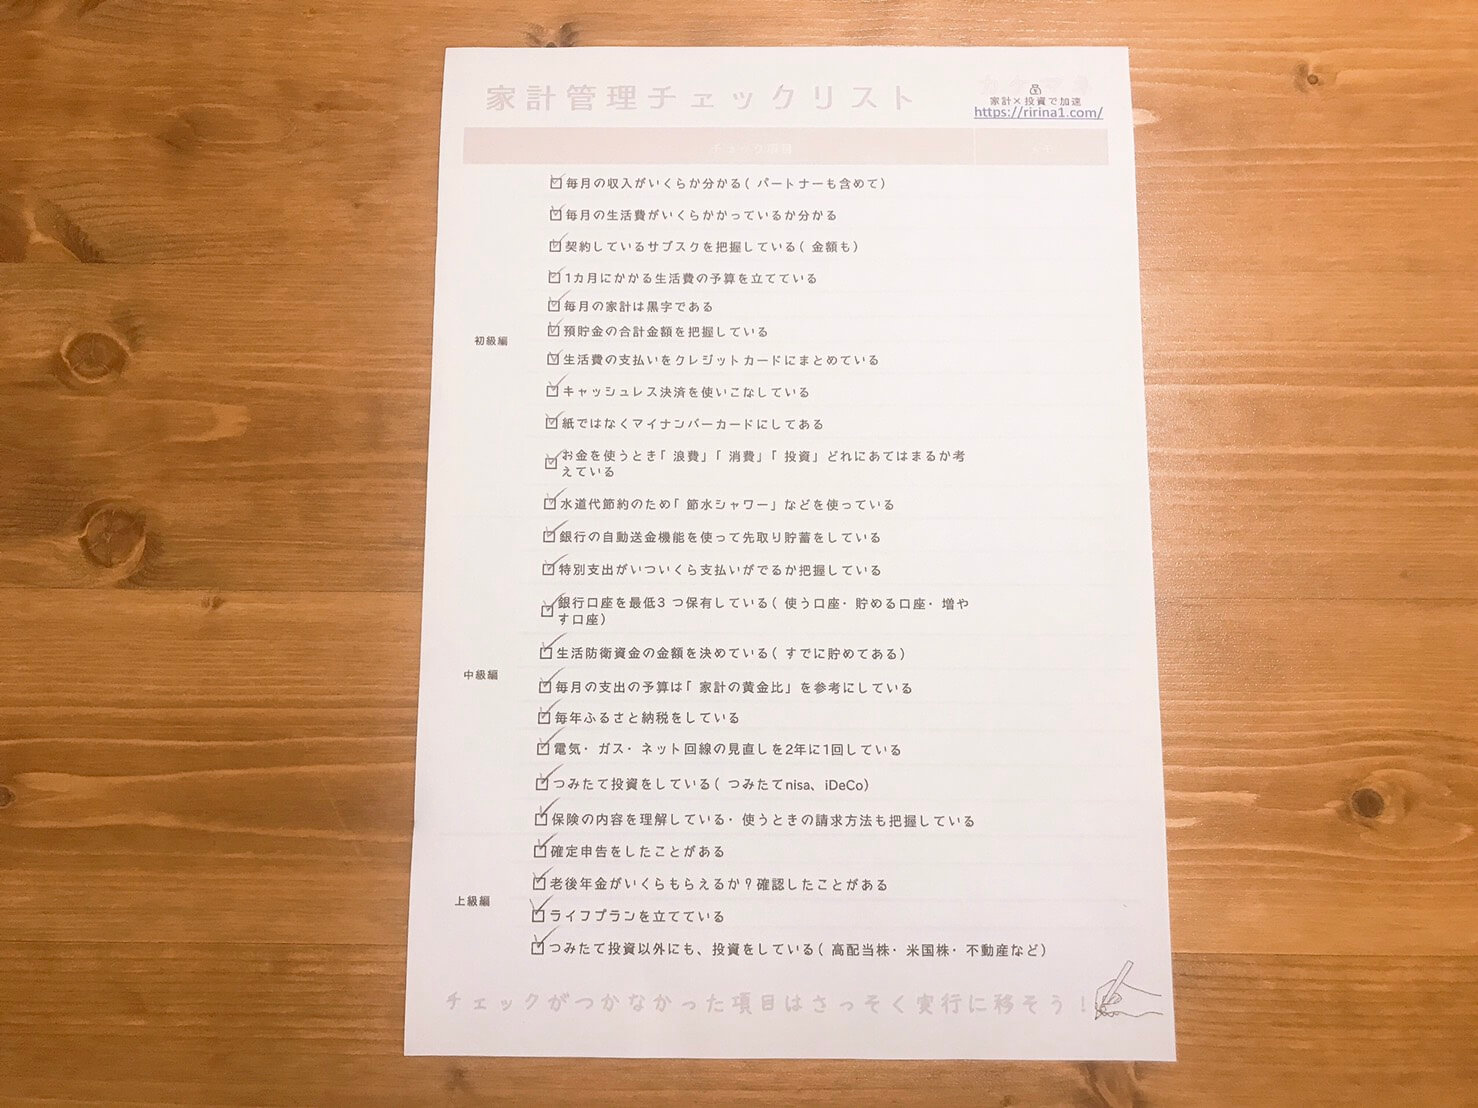 家計管理チェックリスト
家計×投資で加速
https://ririna1.com/
チェック項目
メモ
初級編
毎月の収入がいくらか分かる(パートナーも含めて)
毎月の生活費がいくらかかっているか分かる
契約しているサブスクを把握している(金額も)
1カ月にかかる生活費の予算を立てている
毎月の家計は黒字である
預貯金の合計金額を把握している
生活費の支払いをクレジットカードにまとめている
キャッシュレス決済を使いこなしている
紙ではなくマイナンバーカードにしてある
お金を使うとき「浪費」「消費」「投資」どれにあてはまるか考
えている
水道代節約のため「節水シャワー」などを使っている
中級編
銀行の自動送金機能を使って先取り貯蓄をしている
特別支出がいついくら支払いがでるか把握している
銀行口座を最低3つ保有している(使う口座・貯める口座・増や
す口座)
生活防衛資金の金額を決めている(すでに貯めてある)
毎月の支出の予算は「家計の黄金比」を参考にしている
毎年ふるさと納税をしている
電気・ガス・ネット回線の見直しを2年に1回している
つみたて投資をしている(つみたてnisa、iDeCo)
保険の内容を理解している・使うときの請求方法も把握している
上級編
確定申告をしたことがある
老後年金がいくらもらえるか?確認したことがある
ライフプランを立てている
つみたて投資以外にも、投資をしている(高配当株・米国株・不動産など)
チェックがつかなかった項目はさっそく実行に移そう!